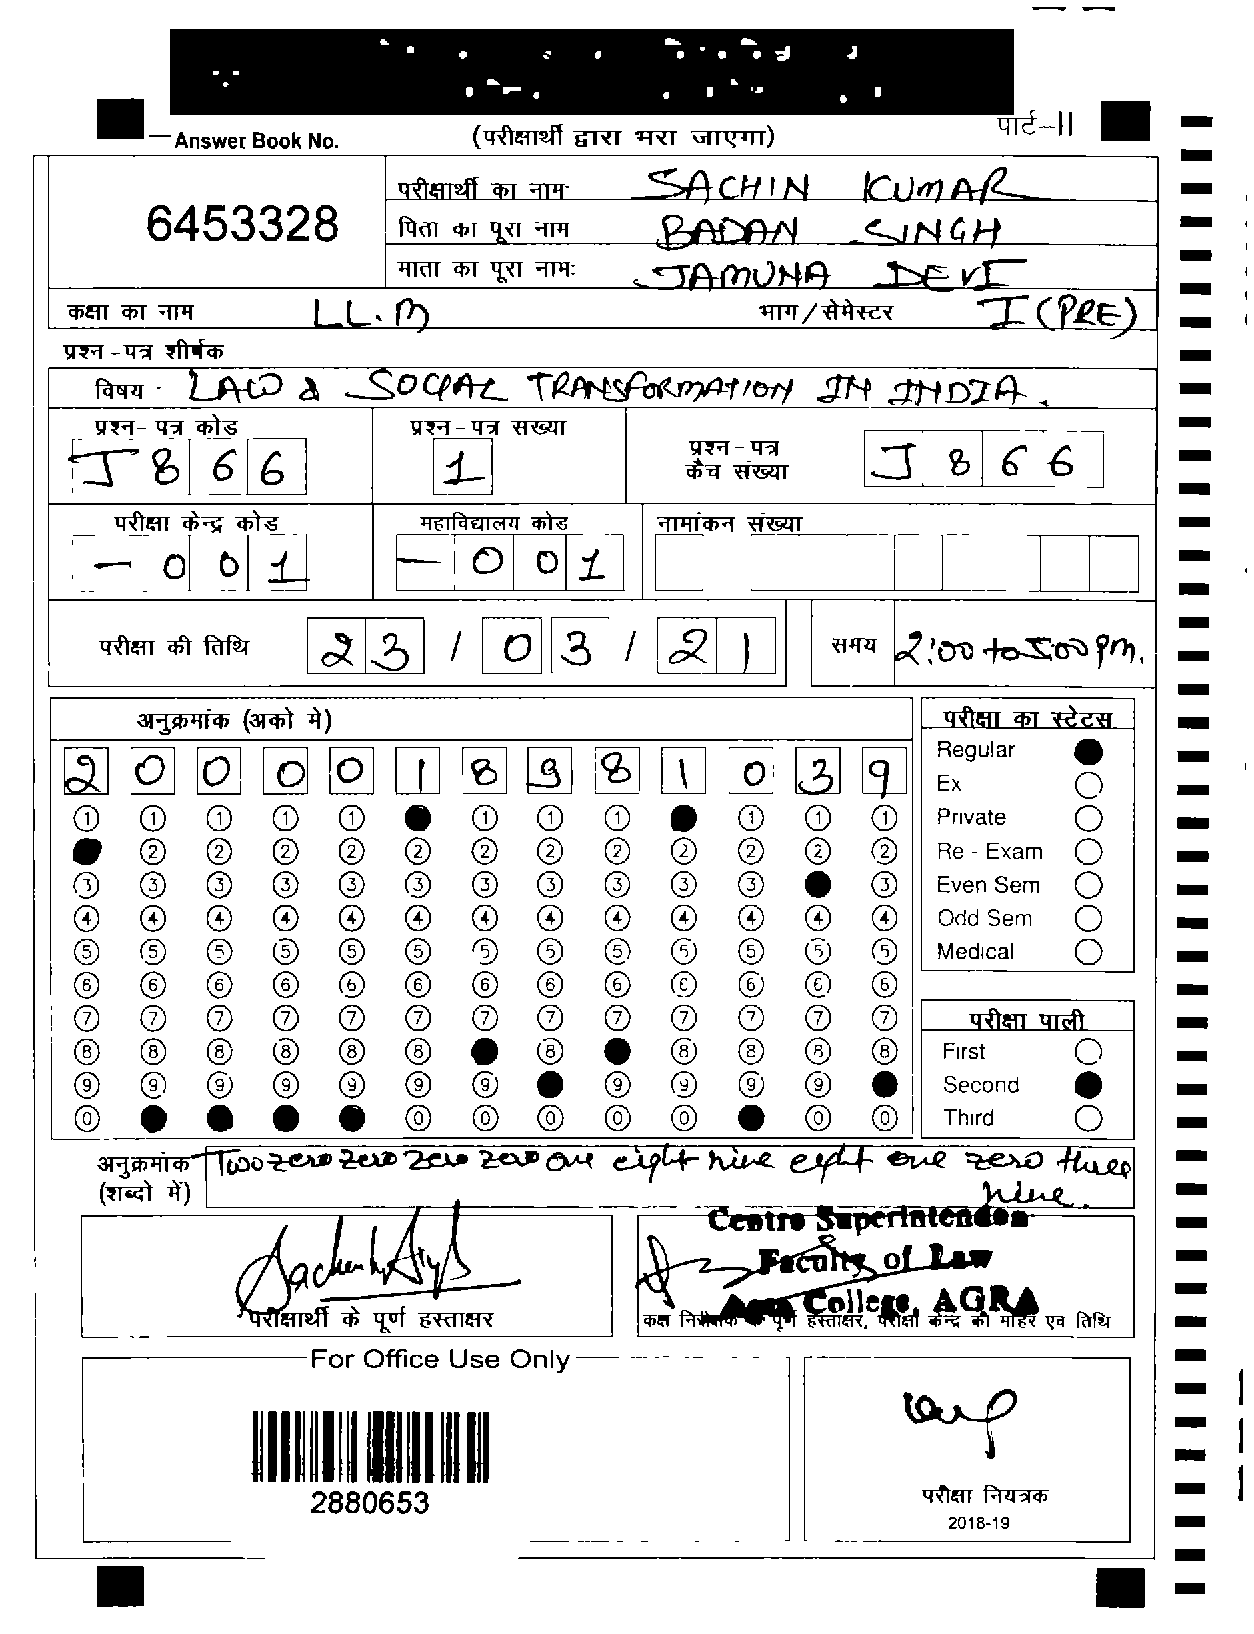 पार्ट-II
Answer Book No. (परीक्षार्थी द्वारा भरा जाएगा)
6453328
परीक्षार्थी का नाम SACHIN KUMAR
पिता का पूरा नाम BADAN SINGH
माता का पूरा नाम: JAMUNA DEVI
कक्षा का नाम LL.M भाग/सेमेस्टर I (PRE)
प्रश्न-पत्र शीर्षक
विषय - LAW & SOCIAL TRANSFORMATION IN INDIA.
प्रश्न-पत्र कोड J866 प्रश्न-पत्र संख्या 1 प्रश्न-पत्र कैच संख्या J866
परीक्षा केन्द्र कोड -001 महाविद्यालय कोड -001 नामांकन संख्या
परीक्षा की तिथि 23/03/21 समय 2:00 to 5:00 Pm.
अनुक्रमांक (अंको मे)
2 0 0 0 0 1 8 9 8 1 0 3 9
1 1 1 1 1 1 1 1 1 1
2 2 2 2 2 2 2 2 2 2 2 2
3 3 3 3 3 3 3 3 3 3 3 3
4 4 4 4 4 4 4 4 4 4 4 4 4
5 5 5 5 5 5 5 5 5 5 5 5 5
6 6 6 6 6 6 6 6 6 6 6 6 6
7 7 7 7 7 7 7 7 7 7 7 7 7
8 8 8 8 8 8 8 8 8 8 8
9 9 9 9 9 9 9 9 9 9 9
0 0 0 0 0 0 0 0
परीक्षा का स्टेटस
Regular
Ex
Private
Re - Exam
Even Sem
Odd Sem
Medical
परीक्षा पाली
First
Second
Third
अनुक्रमांक Two zero zero zero zero one eight nine eight one zero three
(शब्दो में) nine.
Centre Superintendent
Faculty of Law
Agra College, AGRA
परीक्षार्थी के पूर्ण हस्ताक्षर
कक्ष निरीक्षक के पूर्ण हस्ताक्षर, परीक्षा केन्द्र की मोहर एव तिथि
For Office Use Only
2880653
परीक्षा नियत्रक
2018-19